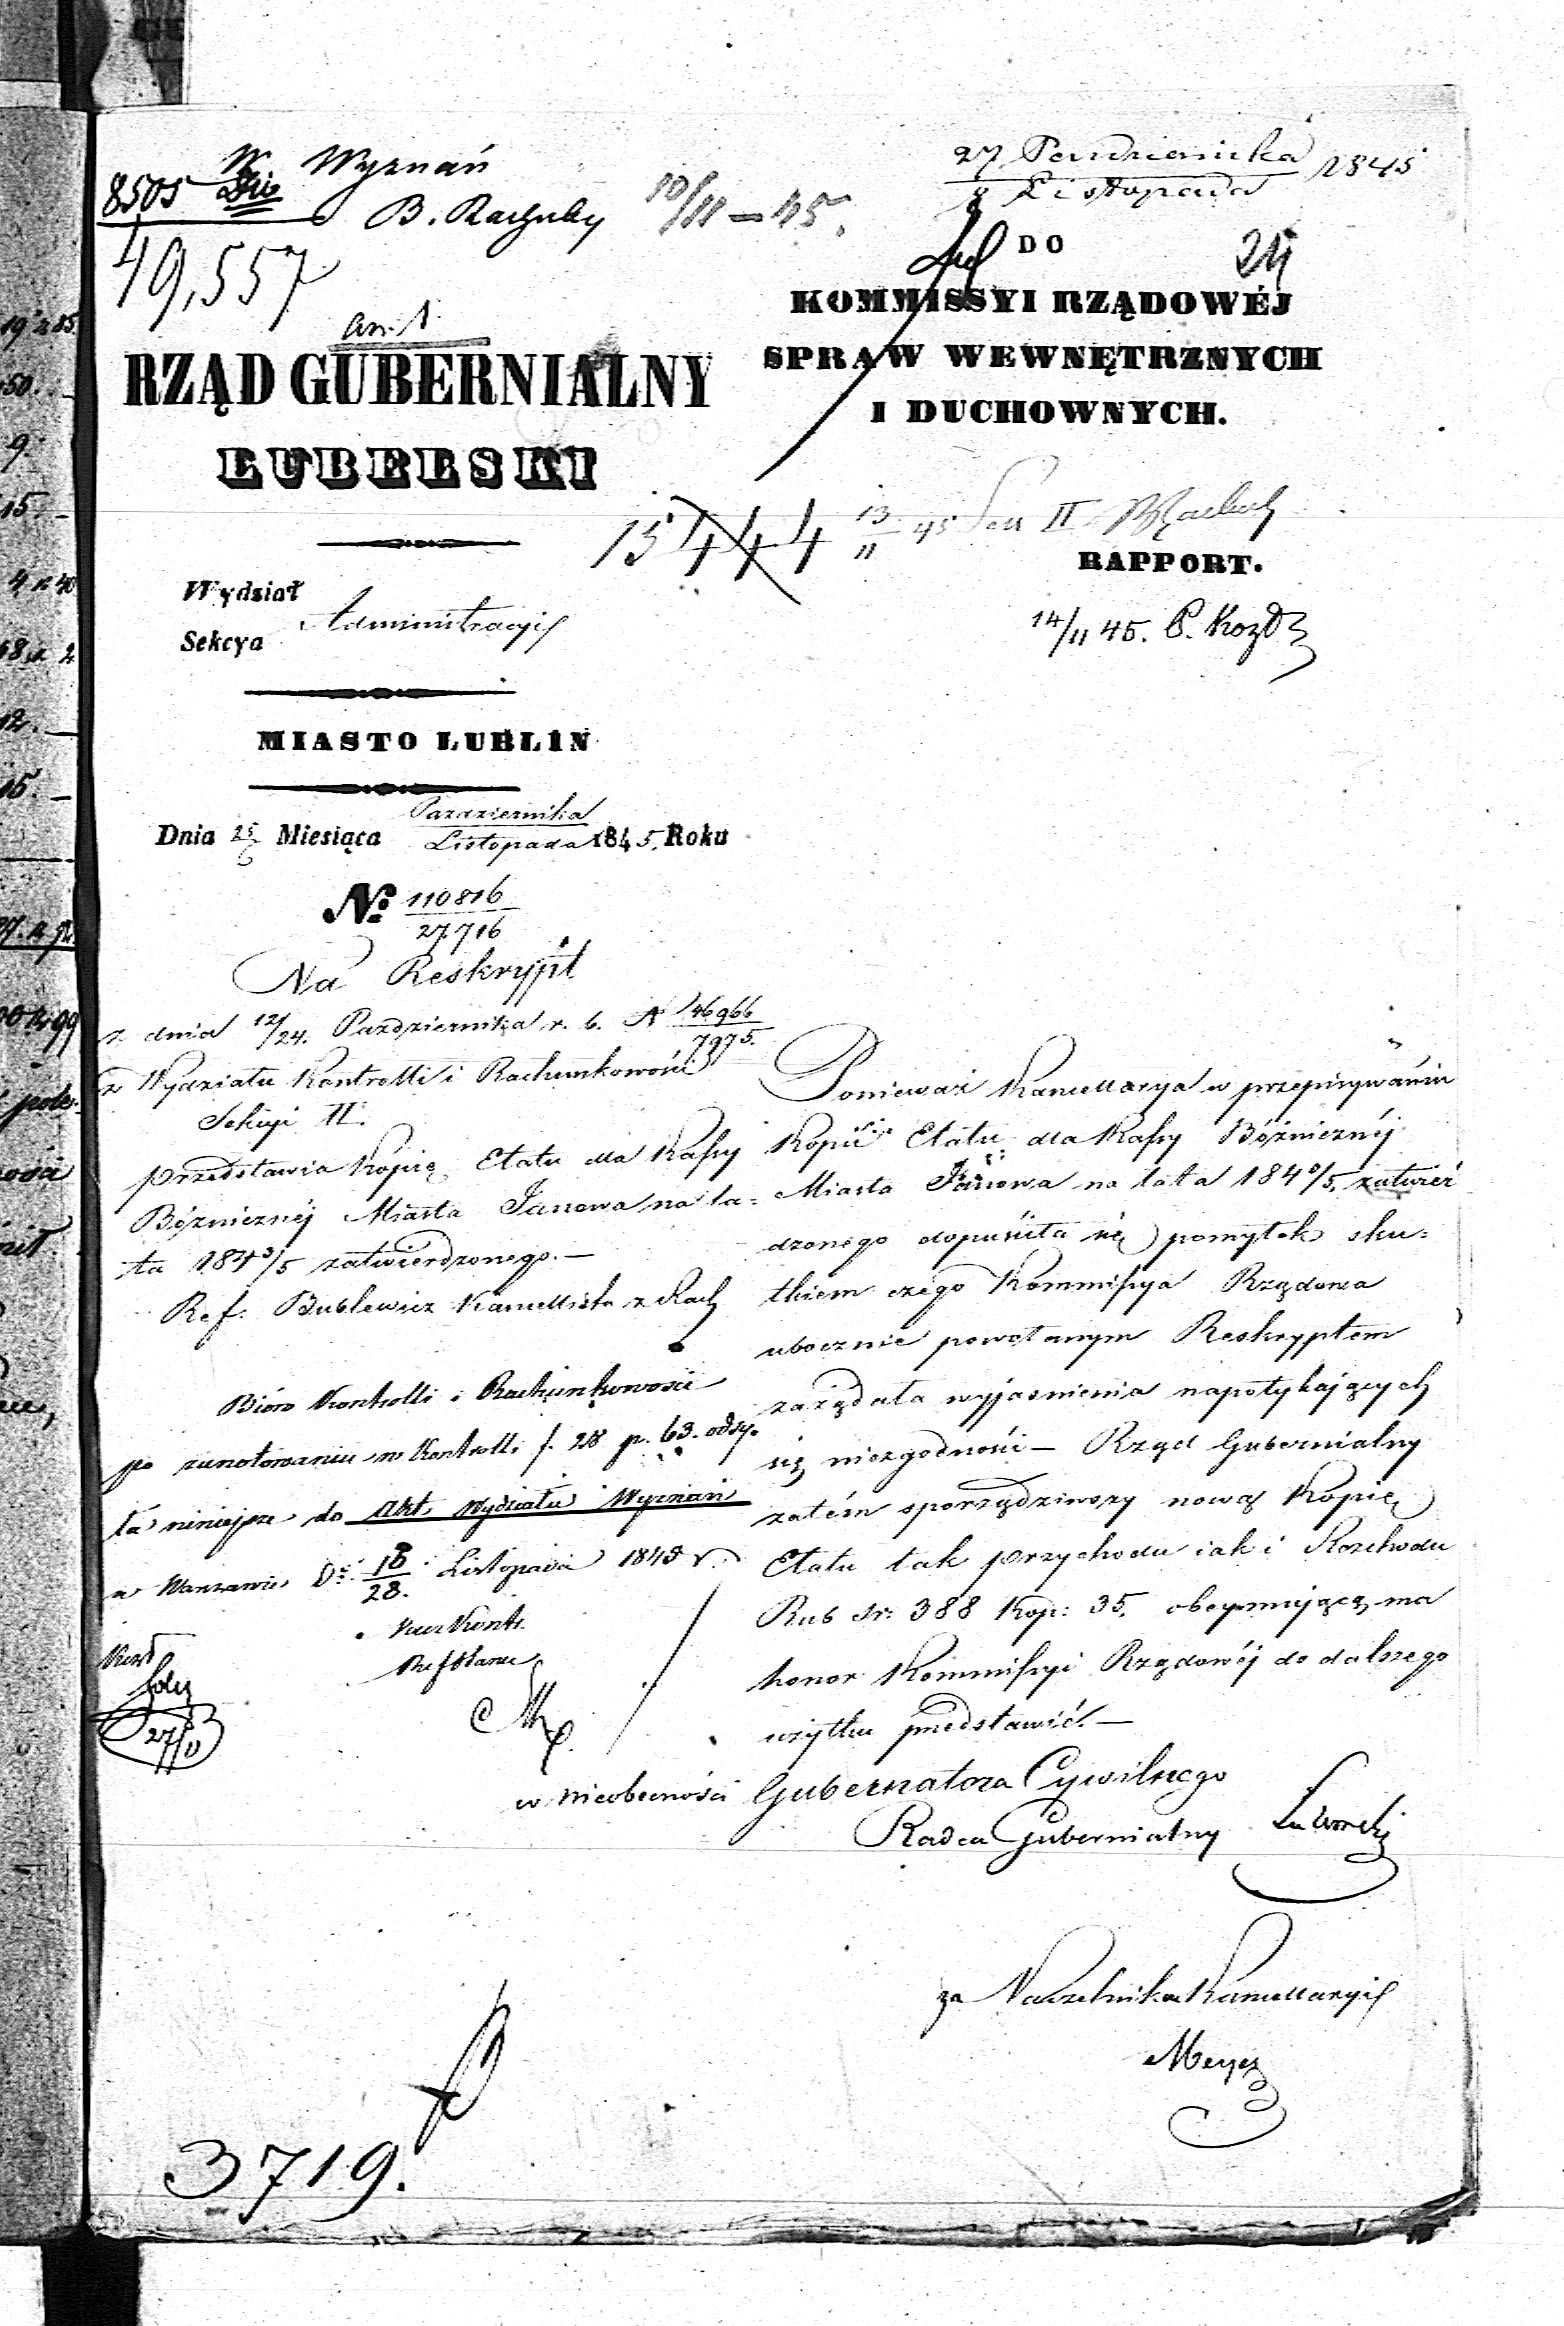 W. Wyznań
8505
B. Rachuby
10/11 – 45.
49,557
27 Października
8 Listopada 1845
DO
KOMMISSYI RZĄDOWÉJ
SPRAW WEWNĘTRZNYCH
I DUCHOWNYCH.
RZĄD GUBERNIALNY
LUBELSKI
15444 13/11 45 II
RAPPORT.
14/11 45.
Wydział
Administracyi
Sekcya
MIASTO LUBLIN
Dnia 25 Miesiąca Października
Listopada 1845. Roku
No 110816
27716
Na Reskrypt
z dnia 12/24. Października r. b. N 46966
7975.
z Wydziału Kontrolli i Rachunkowości
Sekcyi II.
przedstawia kopię Etatu dla Kassy
Bóżnicznéj Miasta Janowa na la=
ta 1843/5 zatwierdzonego.—
Ref. Bublewicz Kancellista z Rach
Bióro Kontrolli i Rachunkowości
po zanotowaniu w Kontrolli f. 28 p. 63. odsy.
ła niniejsze do Akt Wydziału Wyznań
w Warszawie D. 16/28. Listopada 1845 r.
27/11
Ponieważ Kancellarya w przepisywaniu
Kopii Etatu dla Kassy Bóżnicznéj
Miasta Janowa na lata 184 /5. zatwier
dzonego dopuściła się pomyłek sku=
tkiem czego Kommissya Rządowa
ubocznie powołanym Reskryptem
zażądała wyjaśnienia napotykających
się niezgodności — Rząd Gubernialny
zatém sporządziwszy nową Kopię
Etatu tak przychodu iak i Rozchodu
Rub sr: 388 Kop: 35. obeymującą ma
honor Kommissyi Rządowéj do dalszego
użytku przedstawić.—
w nieobecności Gubernatora Cywilnego
Radca Gubernialny
za Naczelnika Kancellaryi
Meyer
3719.